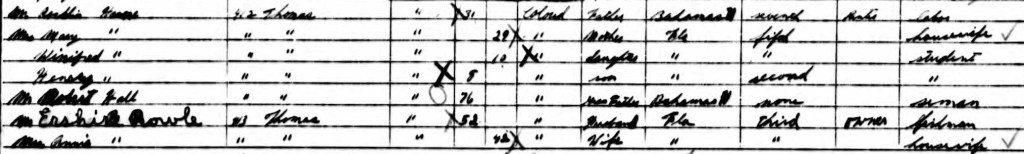 Mr 412 Thomas " 31 Colored Father Bahamas seventh Labor
Mrs Mary " " " " 29 " Mother Fla fifth housewife ✓
Winifred " " " " 10 " daughter " " student
Henery " " " " 8 " son " second "
Mr Robert Hall " " " 76 " Bahamas none seman
Mr Erskine Rowle 413 Thomas " 52 " Husband Fla third owner fishman
Mrs Annie " " " " 42 " Wife " " housewife ✓